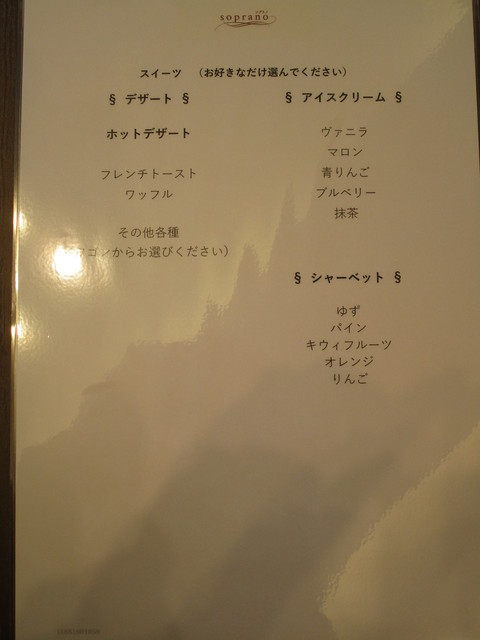 soprano
スイーツ （お好きなだけ選んでください）
§ デザート §
ホットデザート
フレンチトースト
ワッフル
その他各種
ゴンからお選びください）
§ アイスクリーム §
ヴァニラ
マロン
青りんご
ブルベリー
抹茶
§ シャーベット §
ゆず
パイン
キウィフルーツ
オレンジ
りんご